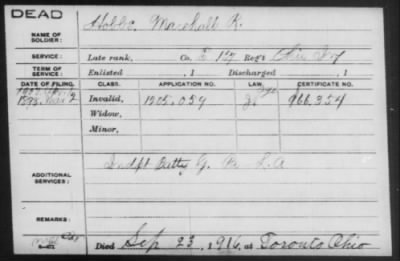 DEAD
NAME OF SOLDIER: Hobbs, Marshall R.
SERVICE: Late rank, Co. E 1 Reg't Ohio
TERM OF SERVICE: Enlisted , 1 Discharged , 1
DATE OF FILING. CLASS. APPLICATION NO. LAW. CERTIFICATE NO.
1898. 2 Invalid, 1205.059 966.354
Widow,
Minor,
ADDITIONAL SERVICES: Indpt Batty G. L.A
REMARKS:
Died Sep 23, 1916, at Toronto Ohio